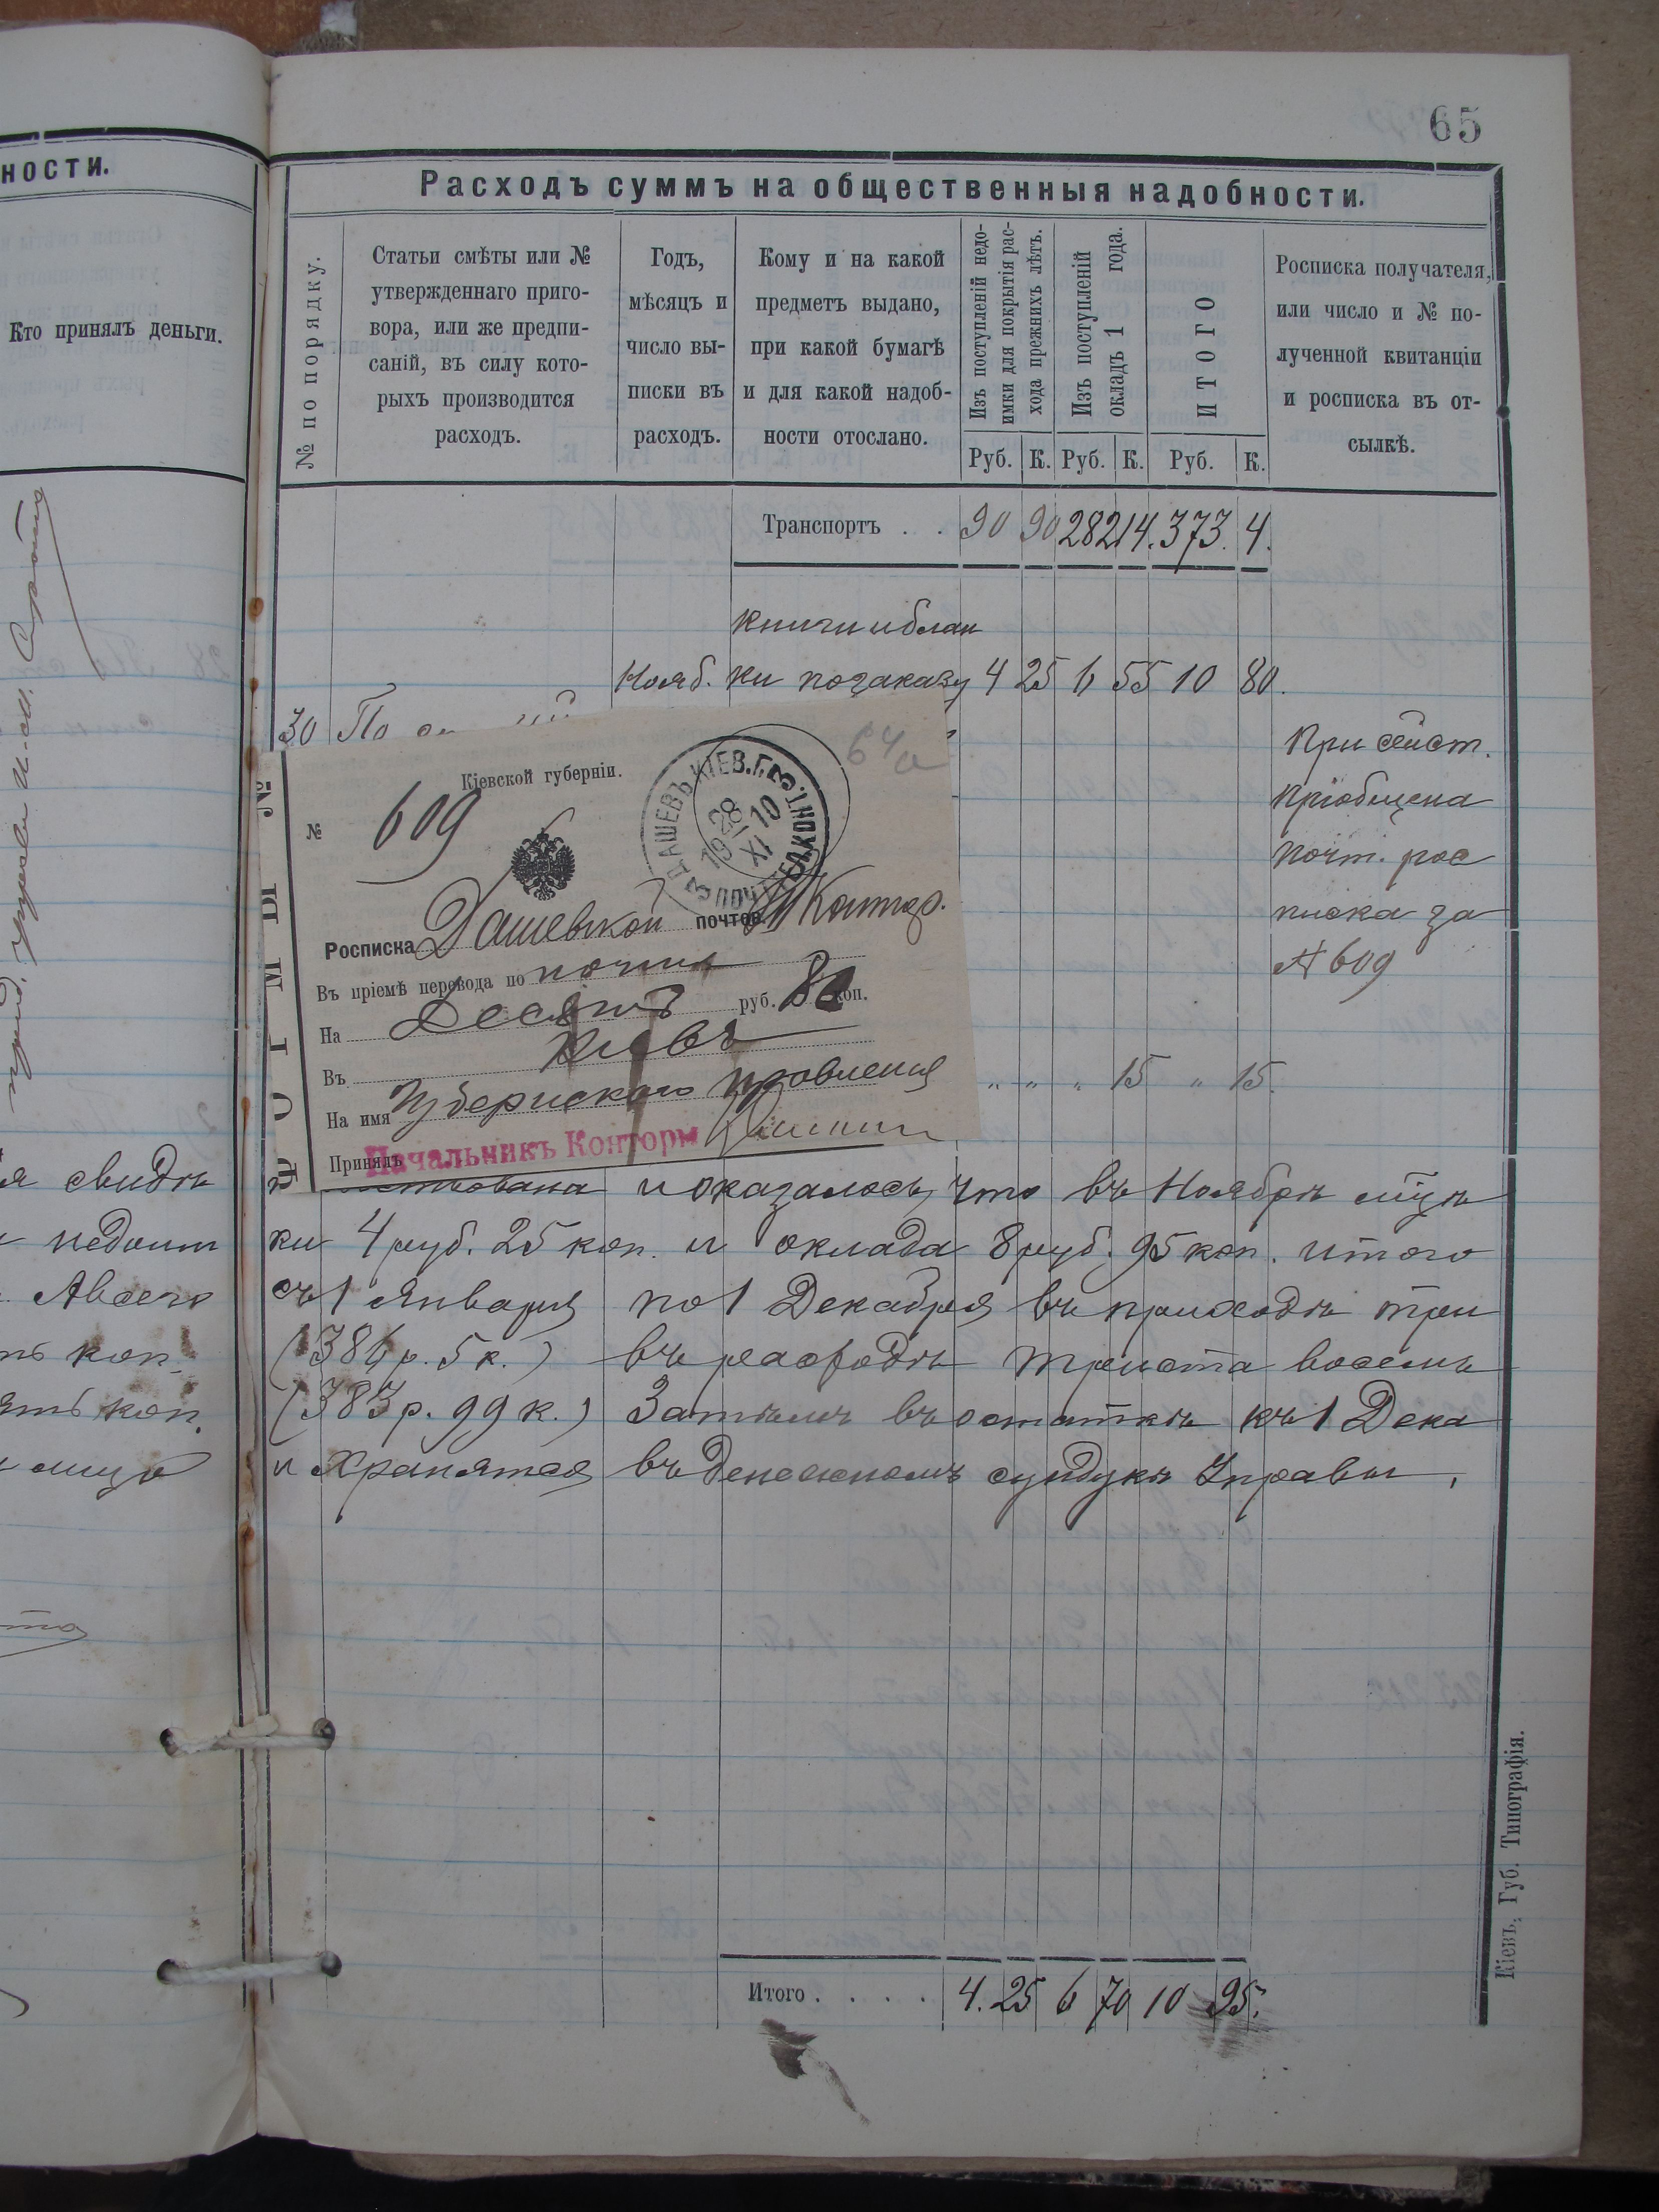 65
ности.
Кто принялъ деньги.
я свидѣ
недоим
Авсего
коп.
ять коп.
Расходъ суммъ на общественныя надобности.
№ по порядку.
Статьи смѣты или №
утвержденнаго приго-
вора, или же предпи-
саній, въ силу кото-
рыхъ производится
расходъ.
Годъ,
мѣсяцъ и
число вы-
писки въ
расходъ.
Кому и на какой
предметъ выдано,
при какой бумагѣ
и для какой надоб-
ности отослано.
Изъ поступленій недо-
имки для покрытія рас-
хода прежнихъ лѣтъ.
Изъ поступленій
окладъ 1 года.
ИТОГО
Росписка получателя,
или число и № по-
лученной квитанціи
и росписка въ от-
сылкѣ.
Руб. К. Руб. К. Руб. К.
Транспортъ . . 90 90 282 14. 373. 4.
книги и блан
Нояб. ки по заказу 4 25 6 55 10 80.
30 По
При сейст.
пріобщена
почт. рос
писка за
№ 609
64а
Кіевской губерніи.
№ 609
ДАШЕВЪ КІЕВ.Г.
28 XI 1910
Росписка Дашевской почтов. Контор.
Въ пріемѣ перевода по почтѣ
На Десять руб. 80 коп.
Въ Кіевъ
На имя Губернского правления
Принялъ
Начальникъ Конторы
„ „ „ 15 „ 15.
и оказалось, что въ Ноябрѣ м҃цѣ
ки 4 руб. 25 коп. и оклада 8 руб. 95 коп. итого
съ 1 Января по 1 Декабря въ приходѣ три
(386 р. 5 к.) въ расходѣ триста восемь
(383 р. 99 к.) Затѣмъ въ остаткѣ къ 1 Дека
и хранятся въ денежномъ сундукѣ Управы.
Итого . . . . 4. 25 6 70 10 95.
Кіевъ, Губ. Типографія.